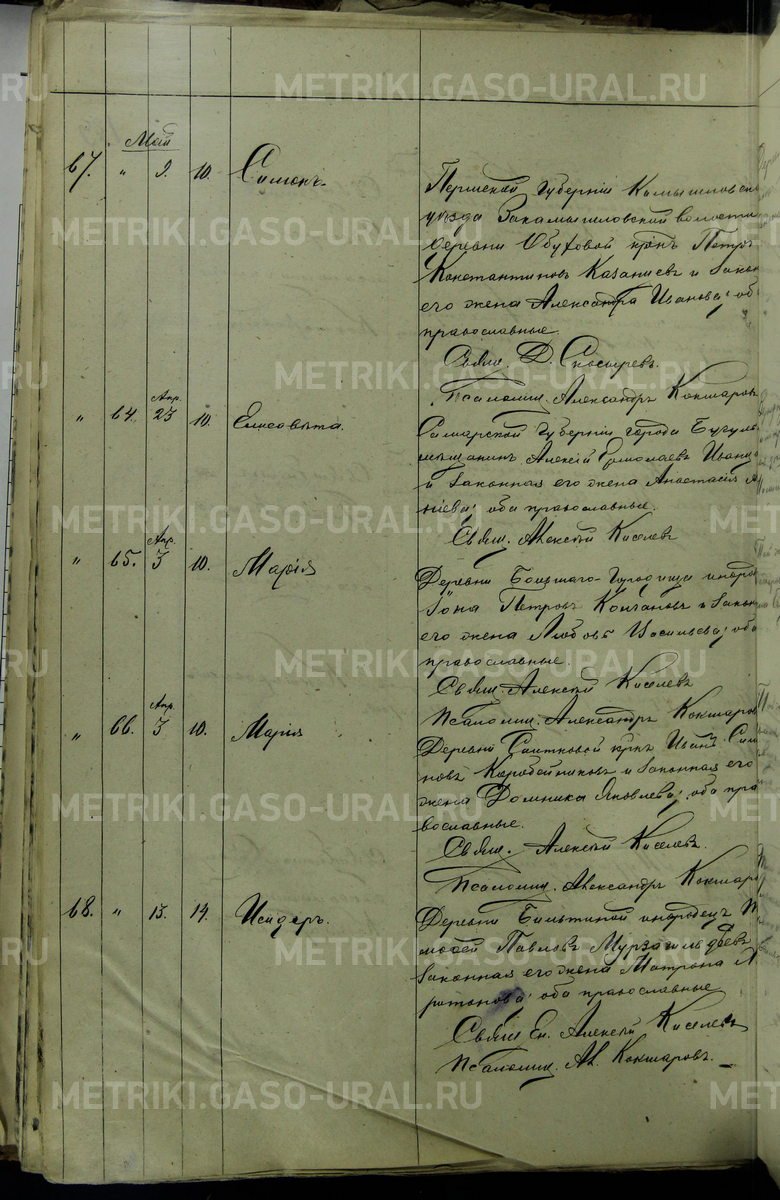 Май
67. " 9. 10. Симонъ.
Пермской губерніи Камышловска
уѣзда Закамышловской волости
деревни Обуховой крнъ Петръ
Константиновъ Казанцевъ и закон
его жена Александра Иванова; оба
православные.
Свящ. Д. Скосыревъ.
Псаломщ. Александръ Кокшаровъ
" 64. Апр. 23 10. Елисавѣта.
Самарской губерніи города Бугуль
мѣщанинъ Алексій Ермолаевъ Иванц
и законная его жена Анастасія А
ніева; оба православные.
Свящ. Алексѣй Киселевъ
" 65. Апр. 3 10. Марія
Деревни Большаго иноро
Іона Петровъ Колчановъ и закон
его жена Любовь Васильева; оба
православные.
Свящ. Алексѣй Киселевъ
Псаломщ. Александръ Кокшаров
" 66. Апр. 3 10. Марія
Деревни крнъ Иванъ Сим
новъ Коробейниковъ и законная его
жена Домника Яковлева; оба пра
вославные.
Свящ. Алексѣй Киселевъ.
Псаломщ. Александръ Кокшаро
68. " 13. 14. Исидоръ.
Деревни инородецъ Ти
мофей Павловъ
законная его жена Матрона
оба православные
Свящ. Алексѣй Киселевъ
Псаломщ. Ал. Кокшаровъ.
METRIKI.GASO-URAL.RU